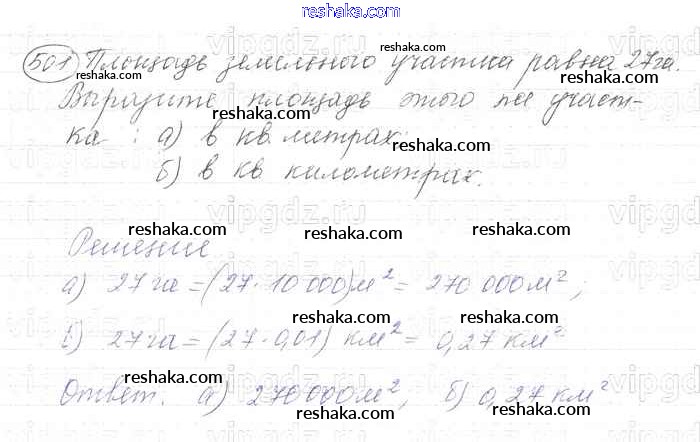 reshaka.com
501 Площадь земельного участка равна 27 га.
reshaka.com
reshaka.com
Выразите площадь этого же участ-
reshaka.com
ка: а) в кв. метрах;
reshaka.com
б) в кв. километрах.
vipgdz.ru
reshaka.com
reshaka.com
Решение
reshaka.com
а) 27 га = (27 · 10 000) м² = 270 000 м²;
reshaka.com
reshaka.com
б) 27 га = (27 · 0,01) км² = 0,27 км²
reshaka.com
reshaka.com
Ответ. а) 270 000 м², б) 0,27 км²
reshaka.com
reshaka.com